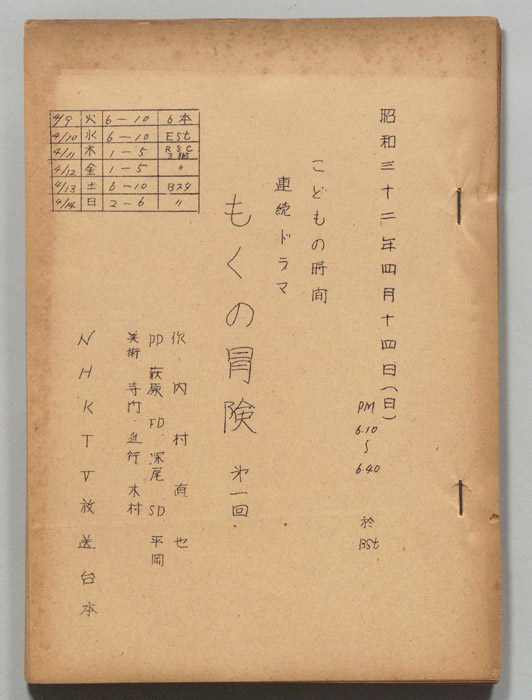 昭和三十二年四月十四日(日)
PM
6.10
〜
6.40
於
BSt
こどもの時間
連続ドラマ
もくの冒険 第一回
作 内村直也
PD 萩原 FD 深尾 SD 平岡
美術 寺門 進行 木村
NHKTV放送台本
4/9 火 6-10 6本
4/10 水 6-10 ESt
4/11 木 1-5 R&C 3階
4/12 金 1-5 〃
4/13 土 6-10 Bスタ
4/14 日 2-6 〃